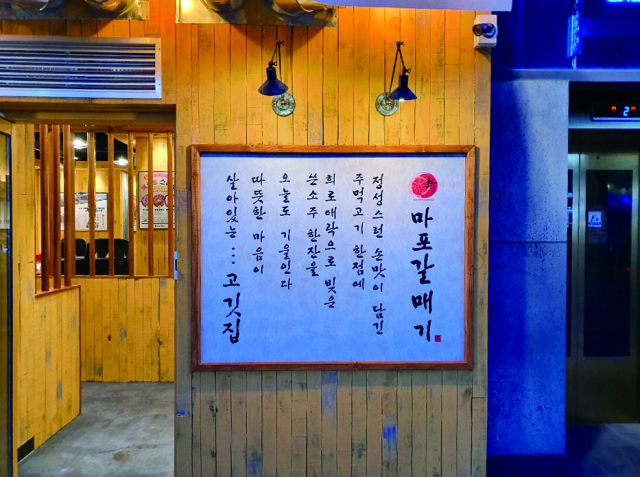 마포갈매기
정성스런 손맛이 담긴
주먹고기 한점에
희로애락으로 빚은
쓴 소주 한잔을
오늘도 기울인다
따뜻한 마음이
살아있는... 고깃집
2